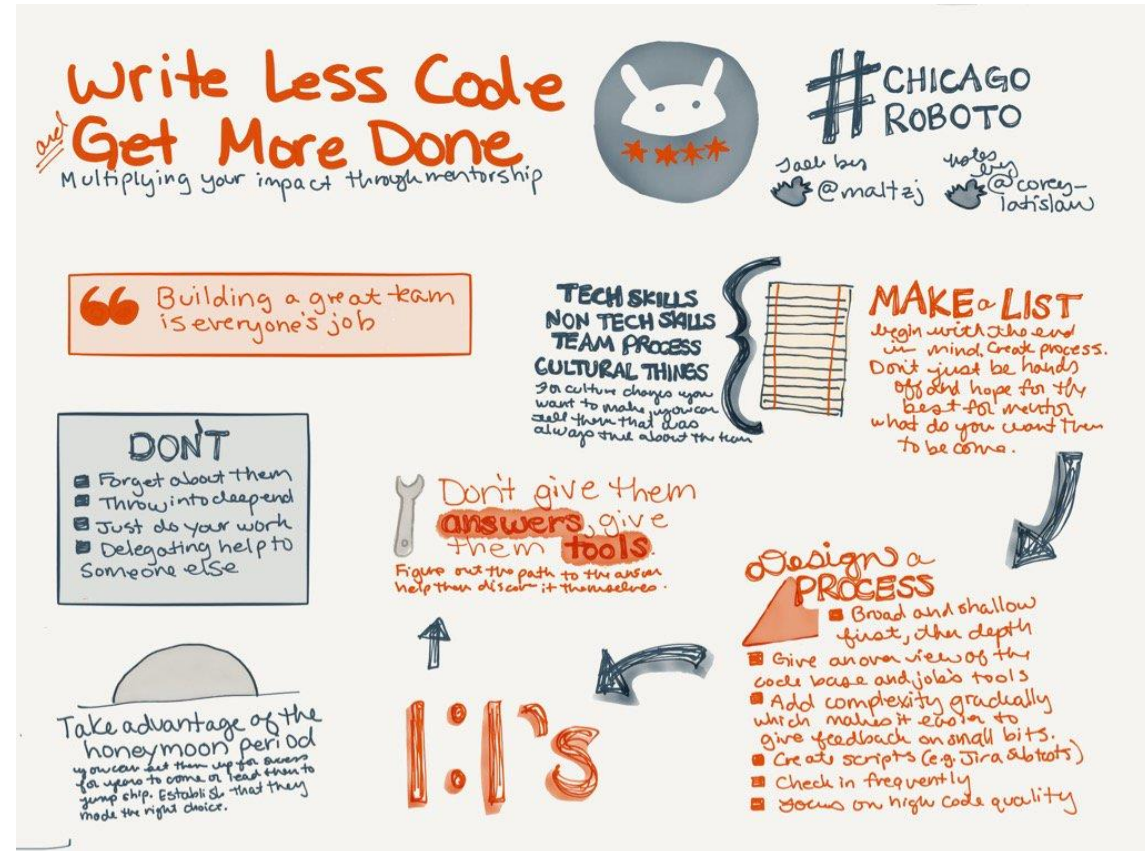 Write Less Code
and
Get More Done
Multiplying your impact through mentorship
#CHICAGO
ROBOTO
talk by
@maltzj
notes
by
@corey-
latislaw
“ Building a great team
is everyone's job
TECH SKILLS
NON TECH SKILLS
TEAM PROCESS
CULTURAL THINGS
For culture changes you
want to make, you can
tell them that was
always true about the team
MAKE a LIST
begin with the end
in mind. Create process.
Don't just be hands
off and hope for the
best for mentor
what do you want them
to become.
DON'T
Forget about them
Throw into deep end
Just do your work
Delegating help to
someone else
Don't give them
answers, give
them tools.
Figure out the path to the answer
help them discover it themselves.
Design a
PROCESS
Broad and shallow
first, then depth
Give an overview of the
code base and job's tools
Add complexity gradually
which makes it easier to
give feedback on small bits.
Create scripts (e.g. Jira subtasks)
Check in frequently
Focus on high code quality
1:1's
Take advantage of the
honeymoon period
you can set them up for success
for years to come or lead them to
jump ship. Establish that they
made the right choice.